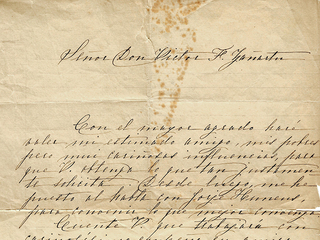 Señor Don Victor F. Zañartu
Con el mayor agrado haré
valer mi estimado amigo, mis pobres
pero muy cariñosas influencias, para
que V. obtenga lo que tan justamen
te solicita. Desde luego, me he
puesto al habla con Jorje Huneeus,
para convenir lo que mejor convenga.
Cuente V. que trataré con